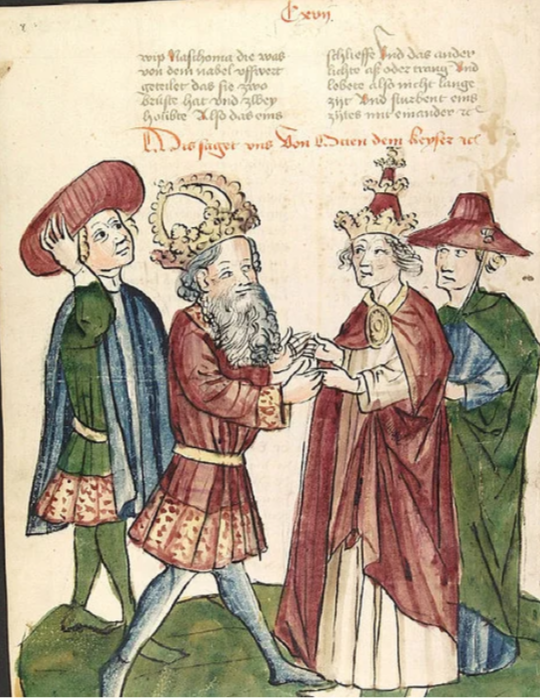 Cxvij.
wip Naschoma die was
von dem nabel vffwert
geteilet das sie zwo
brüste hat vnd zwey
houbte Also das eins
schlieffe Vnd das ander
lachte aß oder trang Vnd
lebete also nicht lange
zijt Vnd sturbent eins
zijtes mit einander ⁊c
Dis saget vns Von dem keyser ⁊c